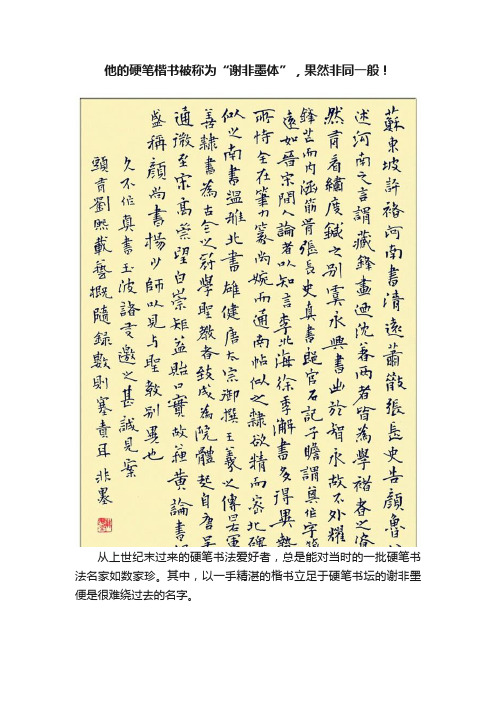 他的硬笔楷书被称为“谢非墨体”，果然非同一般！
蘇東坡評褚河南書清遠蕭散張長史告顏魯
述河南之言謂藏鋒畫迺沈著兩者皆為學褚者之
然有看繡度鍼之別虞永興書出於智永故不外耀
鋒芒而內涵筋骨張長史真書郎官石記子瞻謂其作字
遠如晉宋間人論者以知言李北海徐季海書多得異勢
所恃全在筆力篆尚婉而通南帖似之隸欲精而密北碑
似之南書溫雅北書雄健唐太宗御撰王羲之傳曰
善隸書為古今之冠學聖教者致成為院體起自唐吳
通微至宋高崇望白崇矩益貽口實故蘇黃論書
盛稱顏尚書楊少師以見与聖教別異也
久不作真書玉波邀之甚誠見案
頭有劉熙載藝概隨錄數則塞責耳非墨
从上世纪末过来的硬笔书法爱好者，总是能对当时的一批硬笔书
法名家如数家珍。其中，以一手精湛的楷书立足于硬笔书坛的谢非墨
便是很难绕过去的名字。